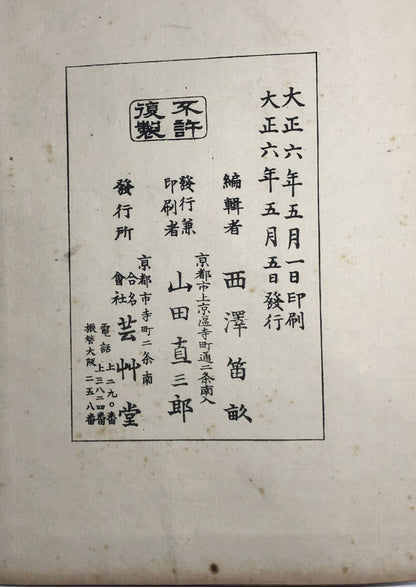 大正六年五月一日印刷
大正六年五月五日發行
不許
復製
編輯者 西澤笛畝
京都市上京區寺町通二条南入
發行兼
印刷者 山田直三郎
京都市寺町二条南
發行所 合名會社 芸艸堂
電話 上二九〇番
上三八二四番
振替大阪 二五八番